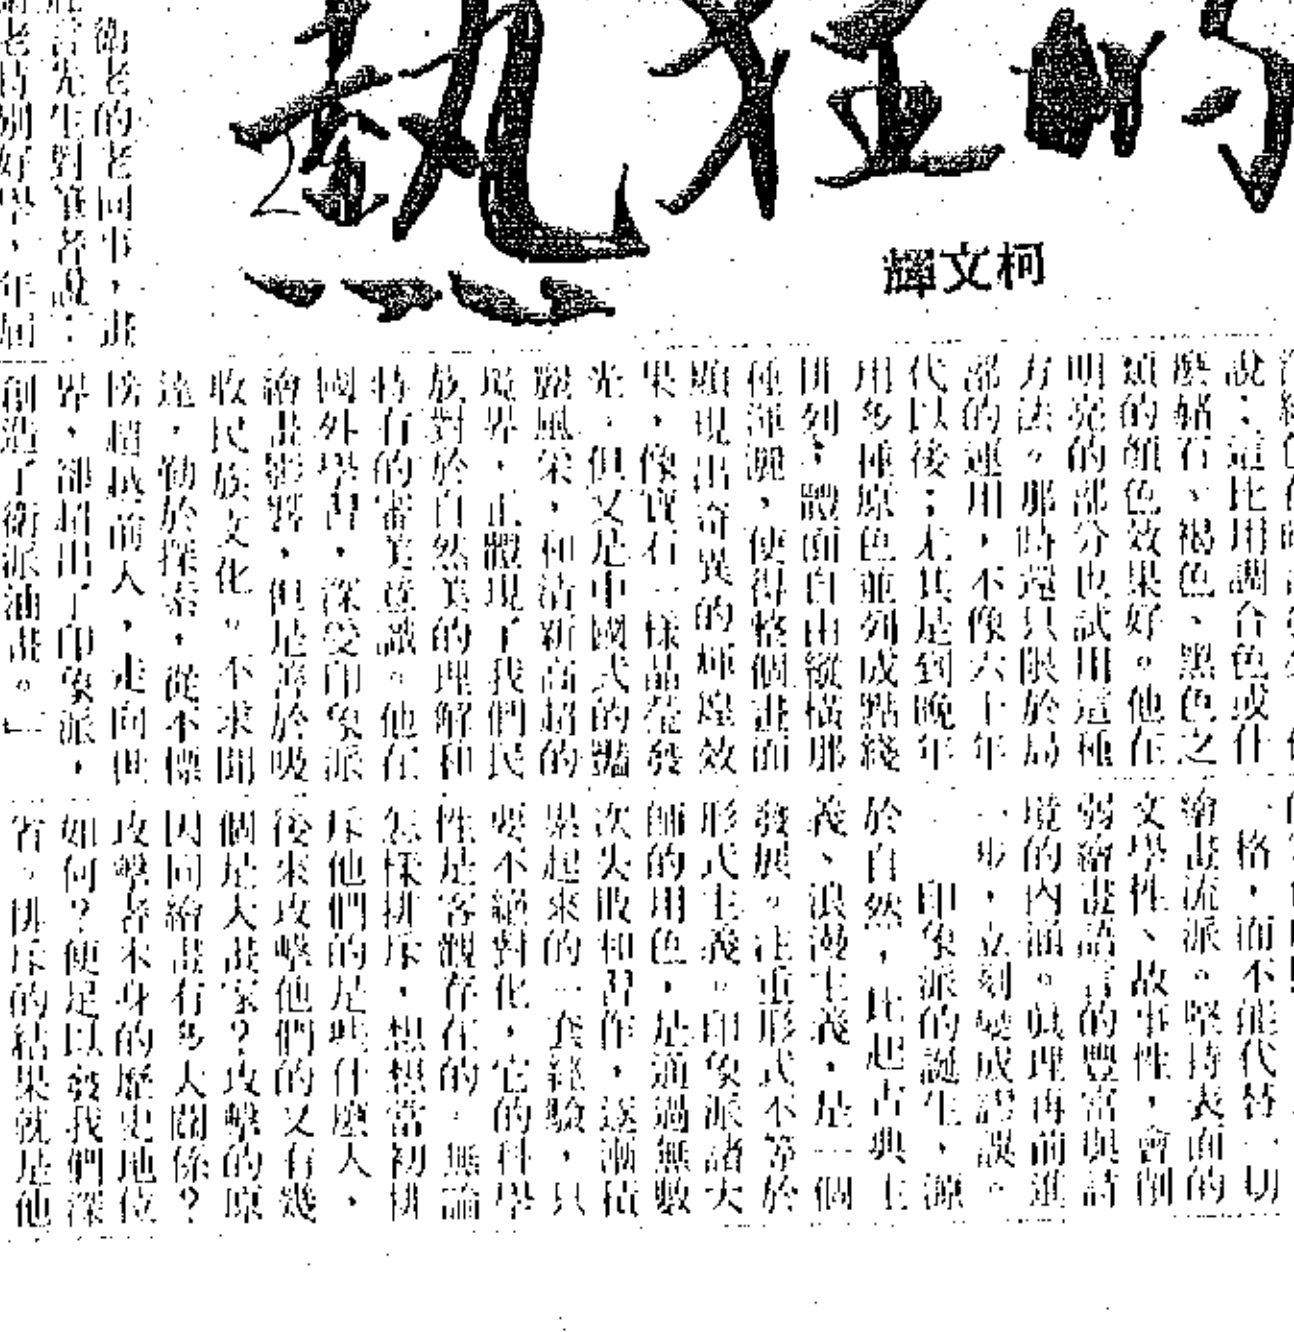 的狂熱
柯文輝
衛老的老同事，畫
言先生對筆者說：
老特別好學，年屆
說：這比用調合色或什
麼赭石、褐色、黑色之
類的顏色效果好。他在
明亮的部分也試用這種
方法。那時還只限於局
部的運用，不像六十年
代以後；尤其是到晚年
用多種原色並列成點綫
排列，體面自由縱橫那
種渾濺，使得整個畫面
顯現出奇異的輝煌效
果，像寶石一樣晶瑩發
光，但又是中國式的豔
麗風采，和清新高超的
境界，正體現了我們民
族對於自然美的理解和
特有的審美意識。他在
國外學習，深受印象派
繪畫影響，但是善於吸
收民族文化。不求聞
達，勤於探索，從不標
榜超越前人，走向世
界，卻超出了印象派，
創造了衛派油畫。」
一格，而不能代替一切
繪畫流派。堅持表面的
文學性、故事性，會削
弱繪畫語言的豐富與詩
境的內涵。眞理再前進
一步，立刻變成謬誤。
印象派的誕生，源
於自然，比起古典主
義、浪漫主義，是一個
發展。注重形式不等於
形式主義。印象派諸大
師的用色，是通過無數
次失敗和習作，逐漸積
累起來的一套經驗，只
要不絕對化，它的科學
性是客觀存在的。無論
怎樣排斥，想想當初排
斥他們的是些什麼人，
後來攻擊他們的又有幾
個是大畫家？攻擊的原
因同繪畫有多大關係？
攻擊者本身的歷史地位
如何？便足以發我們深
省。排斥的結果就是他